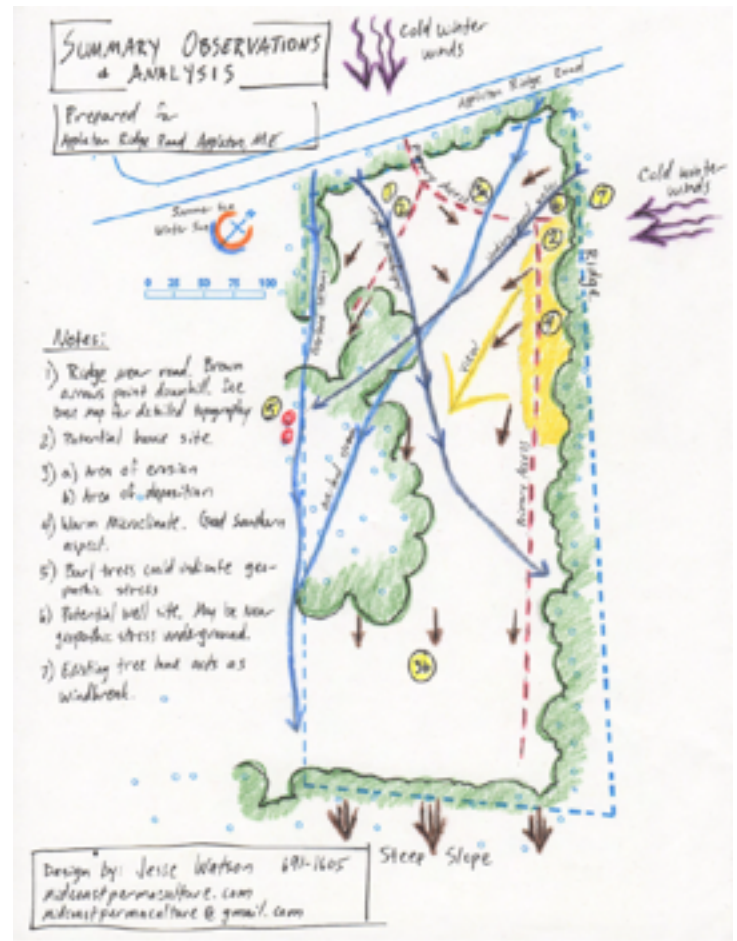 SUMMARY OBSERVATIONS
& ANALYSIS
Prepared for
Appleton Ridge Road, Appleton, ME
Cold winter
winds
Appleton Ridge Road
Cold winter
winds
Summer Sun
Winter Sun
0 25 50 75 100
Primary Access
Underground water
Ridge
View
Primary Access
Notes:
1) Ridge near road. Brown
arrows point downhill. See
base map for detailed topography
2) Potential house site.
3) a) Area of erosion
b) Area of deposition
4) Warm Microclimate. Good Southern
aspect.
5) Burl trees could indicate geo-
pathic stress
6) Potential well site. May be near
geopathic stress underground.
7) Existing tree line acts as
windbreak.
1
2
6
7
2
4
5
3b
Steep Slope
Design by: Jesse Watson 691-1605
midcoastpermaculture.com
midcoastpermaculture@gmail.com